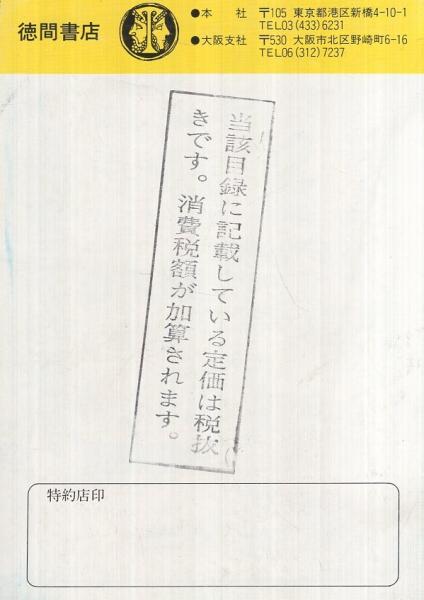 徳間書店
●本　社　〒105 東京都港区新橋4-10-1
TEL03(433)6231
●大阪支社　〒530 大阪市北区野崎町6-16
TEL06(312)7237
当該目録に記載している定価は税抜
きです。消費税額が加算されます。
特約店印